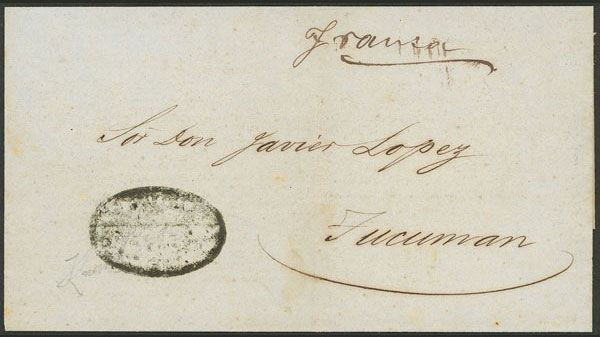 Franca
Sor Don Javier Lopez
Tucuman